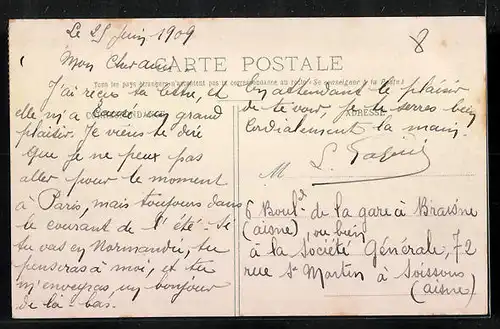 Le 25 Juin 1909
8
Mon Cher ami.
CARTE POSTALE
Tous les pays étrangers n'acceptent pas la correspondance au recto (Se renseigner à la Poste)
CORRESPONDANCE
ADRESSE
J'ai reçu ta lettre, et
elle m'a causé un grand
plaisir. Je viens te dire
que je ne peux pas
aller pour le moment
à Paris, mais toujours dans
le courant de l'été. Si
tu vas en Normandie, tu
penseras à moi, et tu
m'enverras, un bonjour
de là-bas.
En attendant le plaisir
de te voir, je te serres bien
Cordialement la main.
M
L.
6 Boul^d de la gare à Braisne
(aisne) ou bien
à la Société Générale, 72
rue S^t Martin à Soissons
(aisne)